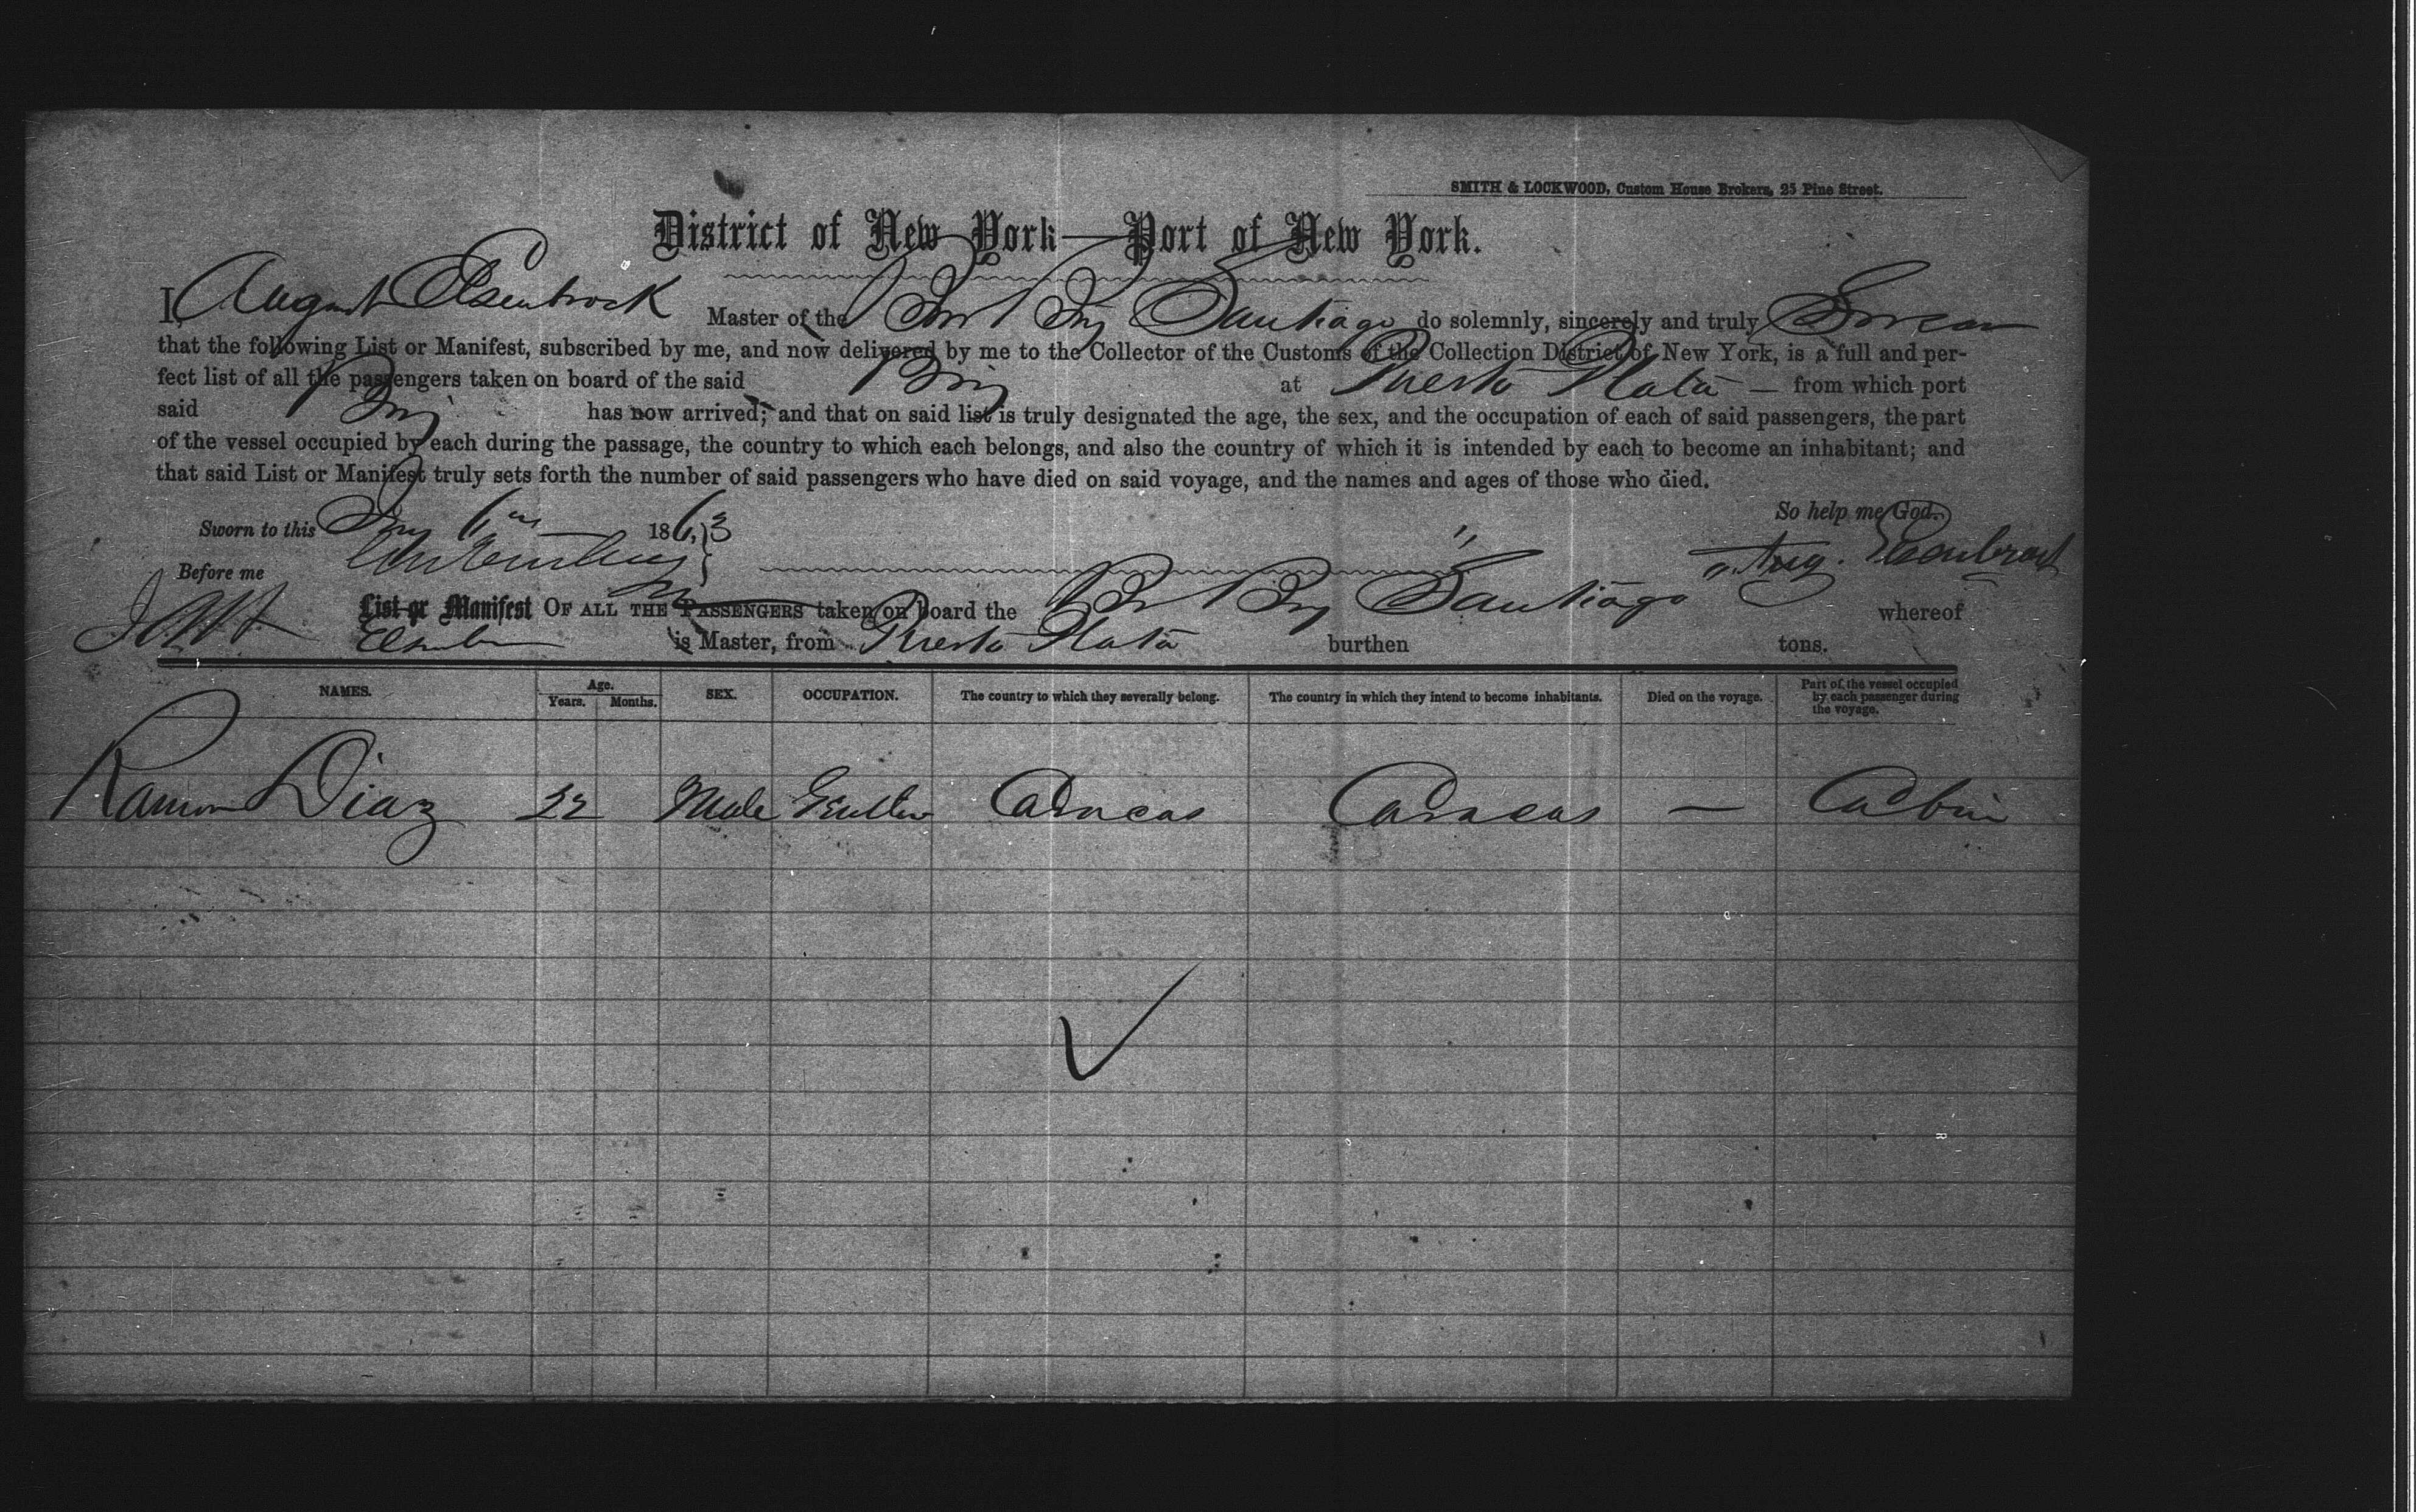 SMITH & LOCKWOOD, Custom House Brokers, 25 Pine Street.
District of New York—Port of New York.
I, August Elsenbrock Master of the Brig Santiago do solemnly, sincerely and truly Swear
that the following List or Manifest, subscribed by me, and now delivered by me to the Collector of the Customs of the Collection District of New York, is a full and per-
fect list of all the passengers taken on board of the said Brig at Puerto Plata — from which port
said Brig has now arrived; and that on said list is truly designated the age, the sex, and the occupation of each of said passengers, the part
of the vessel occupied by each during the passage, the country to which each belongs, and also the country of which it is intended by each to become an inhabitant; and
that said List or Manifest truly sets forth the number of said passengers who have died on said voyage, and the names and ages of those who died.
So help me God.
Sworn to this 186,3
Before me Aug. Elsenbrock
List or Manifest OF ALL THE PASSENGERS taken on board the Br Brig Santiago whereof
is Master, from Puerto Plata burthen tons.
NAMES. Age. Years. Months. SEX. OCCUPATION. The country to which they severally belong. The country in which they intend to become inhabitants. Died on the voyage. Part of the vessel occupied by each passenger during the voyage.
Ramon Diaz 22 Male Caracas Caracas — Cabin